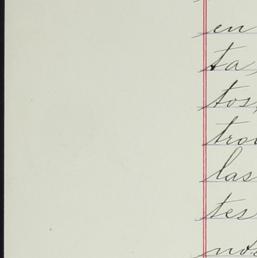 en
ta,
tos,
tro
las
tes
nos